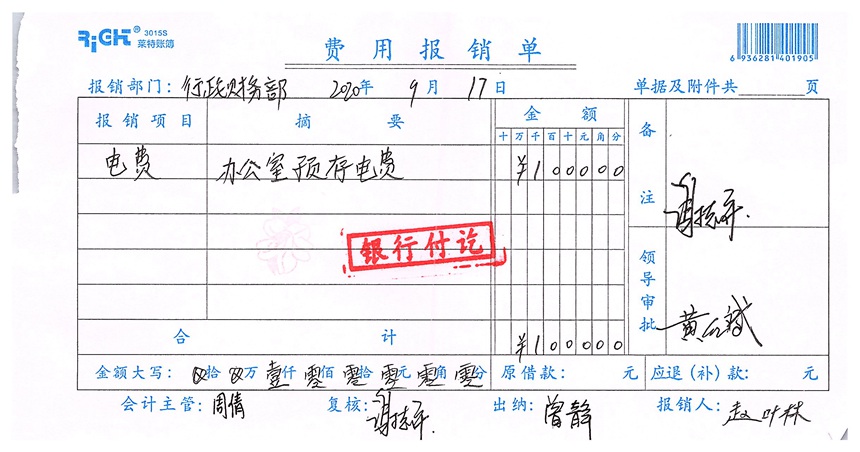 RiGHT® 3015S
莱特账簿
费用报销单
6 936281 401905
报销部门：行政财务部 2020年 9月 17日 单据及附件共 页
报销项目 摘要 金额 备注
十万千百十元角分
电费 办公室预存电费 ¥1 0 0 0 0 0
银行付讫
领导审批 黄
合计 ¥1 0 0 0 0 0
金额大写： 拾 万 壹仟 零佰 零拾 零元 零角 零分 原借款： 元 应退（补）款： 元
会计主管：周倩 复核： 出纳：曾静 报销人：赵叶林